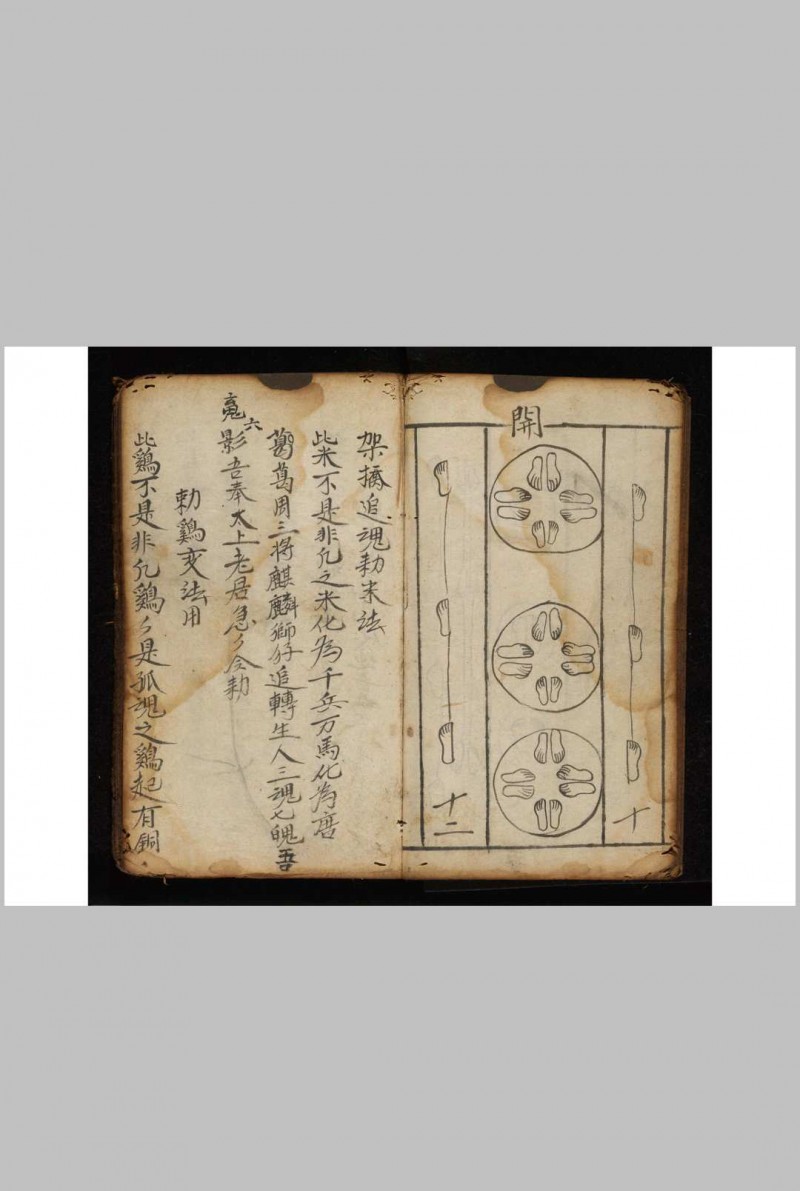 開
十
十二
架橋追魂勅米法
此米不是非凡之米化為千兵万馬化為唐
葛周三将麒麟獅仔追轉生人三魂七魄吾
六
影吾奉太上老君急〻令勅
勅鷄变法用
此鷄不是非凡鷄〻是孤魂之鷄起有銅